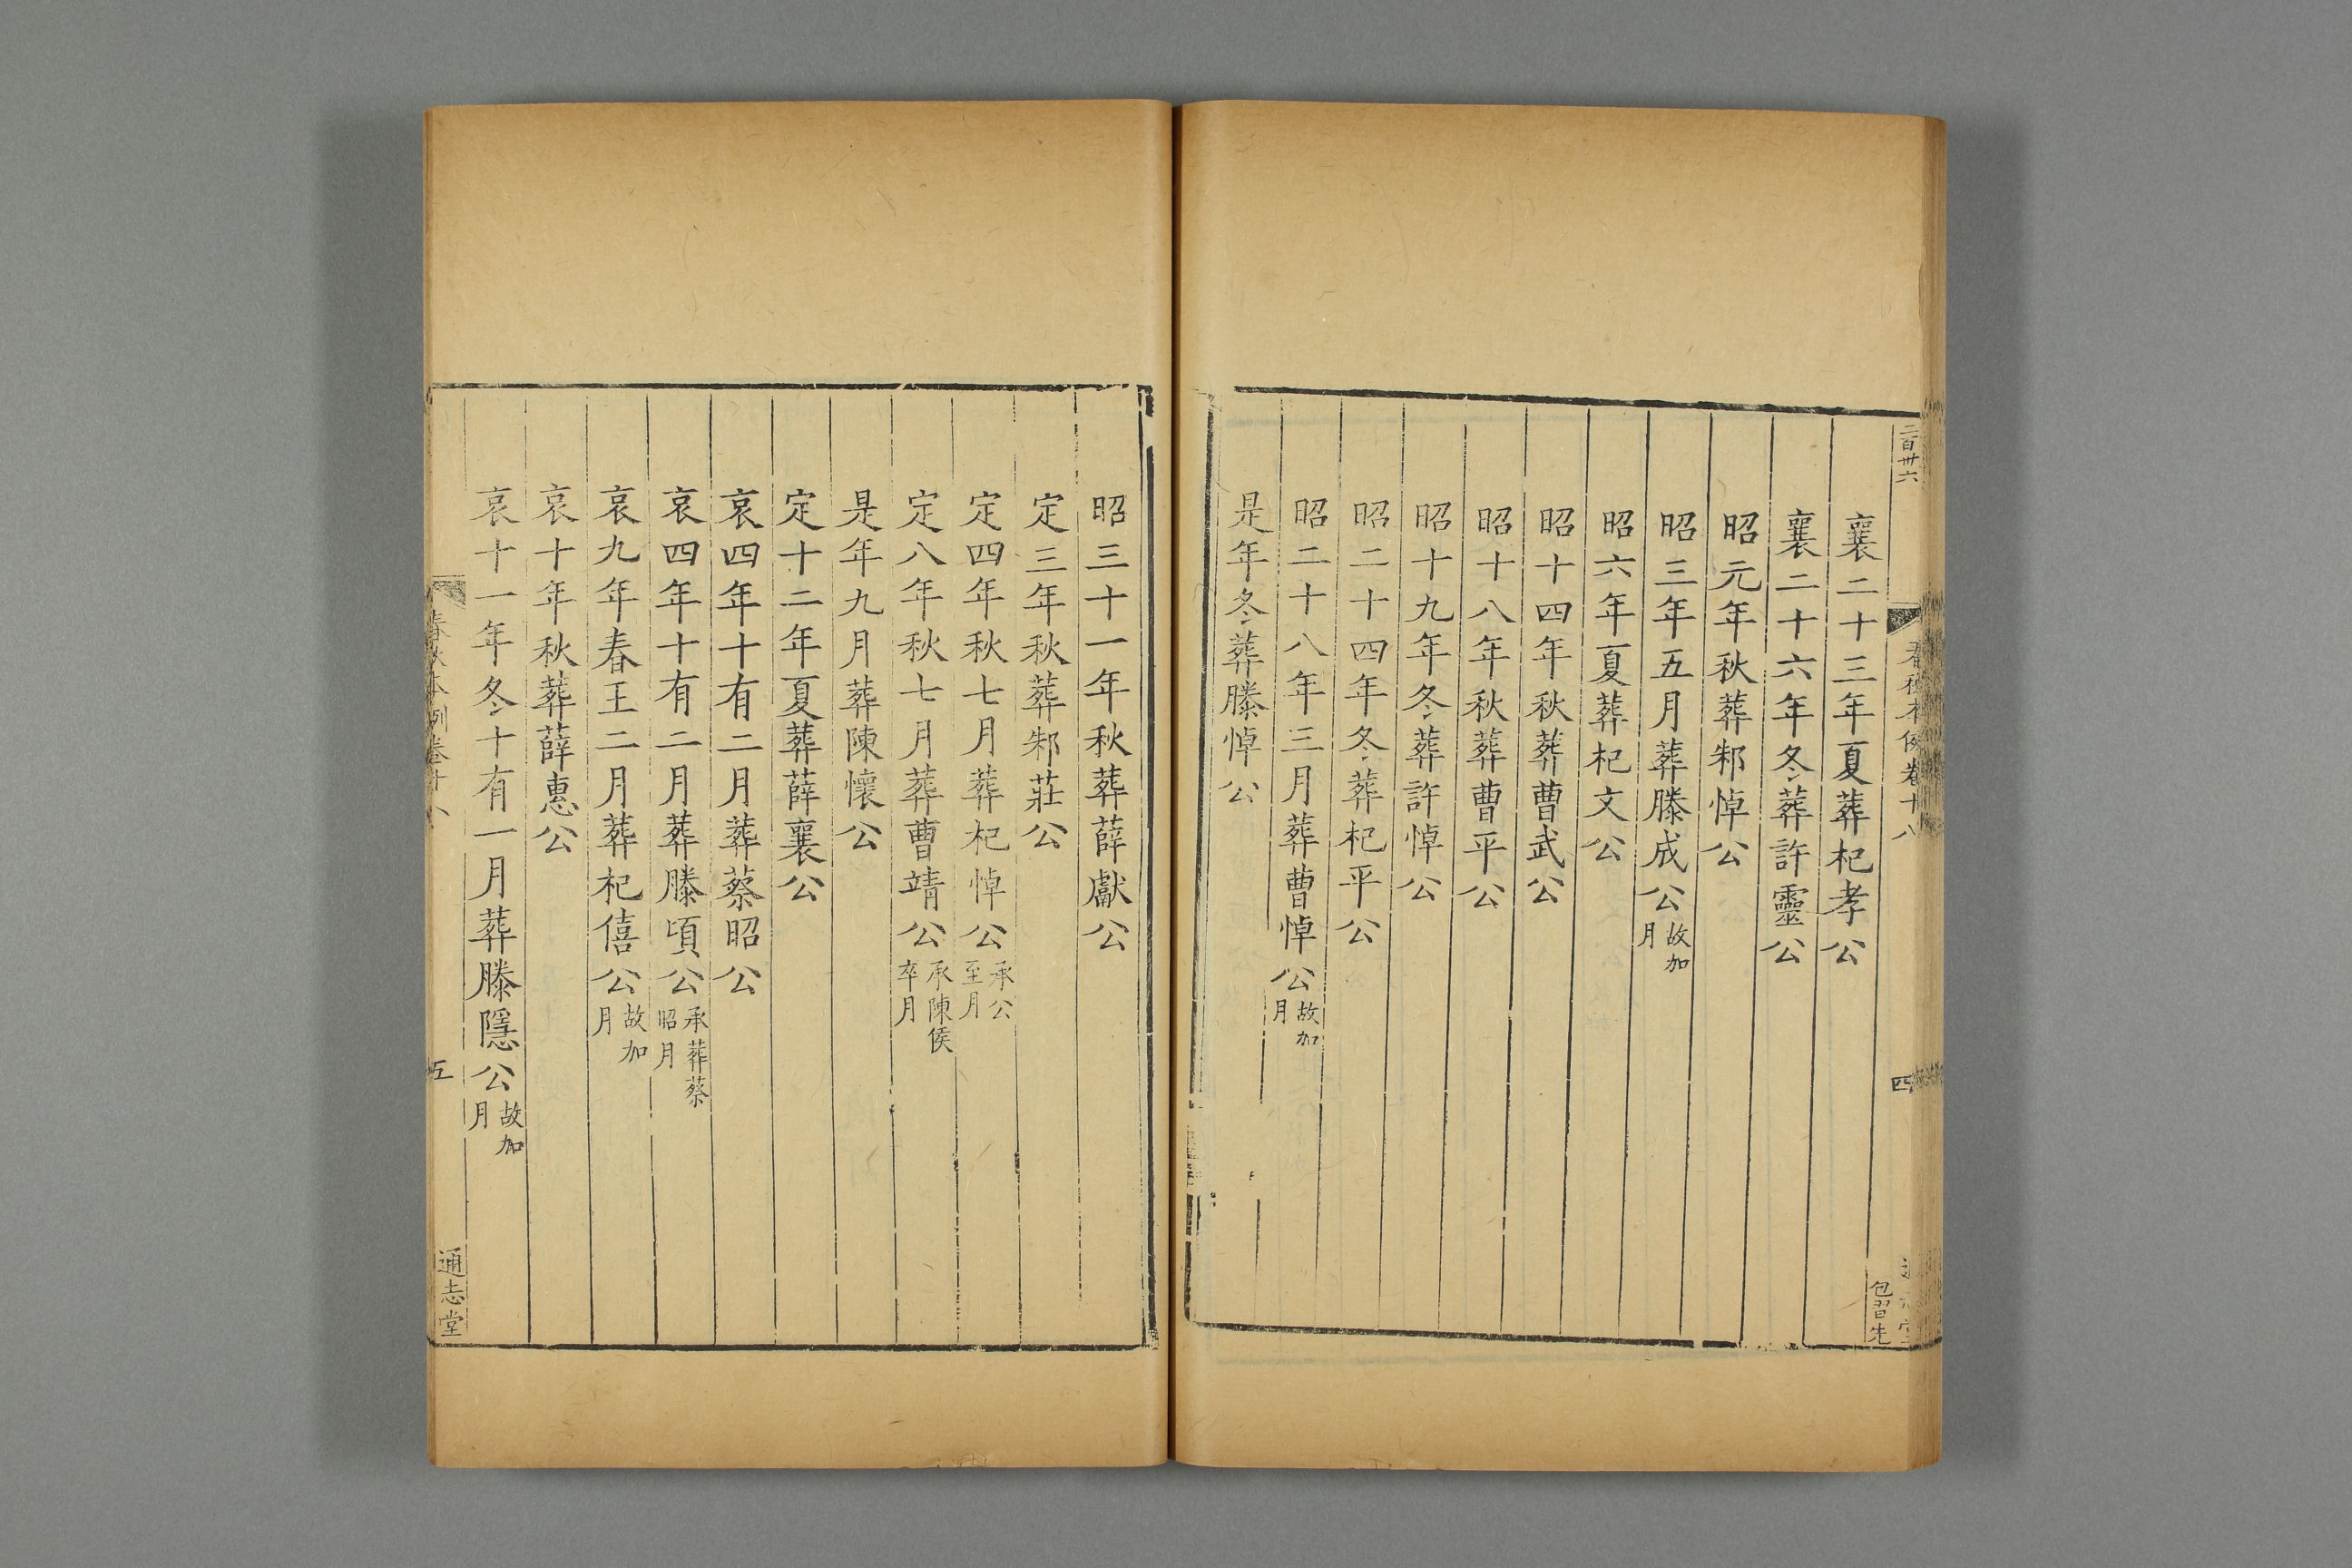 二百卅六
春秋本例卷十八
四
包習先
襄二十三年夏葬杞孝公
襄二十六年冬葬許靈公
昭元年秋葬邾悼公
昭三年五月葬滕成公故加月
昭六年夏葬杞文公
昭十四年秋葬曹武公
昭十八年秋葬曹平公
昭十九年冬葬許悼公
昭二十四年冬葬杞平公
昭二十八年三月葬曹悼公故加月
是年冬葬滕悼公
昭三十一年秋葬薛獻公
定三年秋葬邾莊公
定四年秋七月葬杞悼公承公至月
定八年秋七月葬曹靖公承陳侯卒月
是年九月葬陳懷公
定十二年夏葬薛襄公
哀四年十有二月葬蔡昭公
哀四年十有二月葬滕頃公承葬蔡昭月
哀九年春王二月葬杞僖公故加月
哀十年秋葬薛惠公
哀十一年冬十有一月葬滕隱公故加月
春秋本例卷十八
五
通志堂